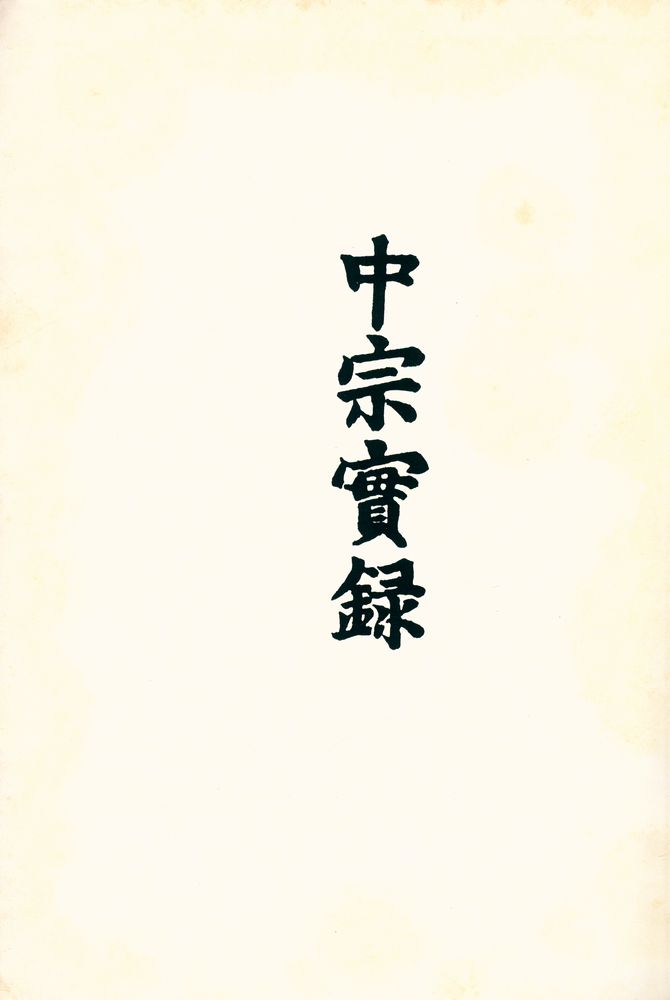 中宗實録